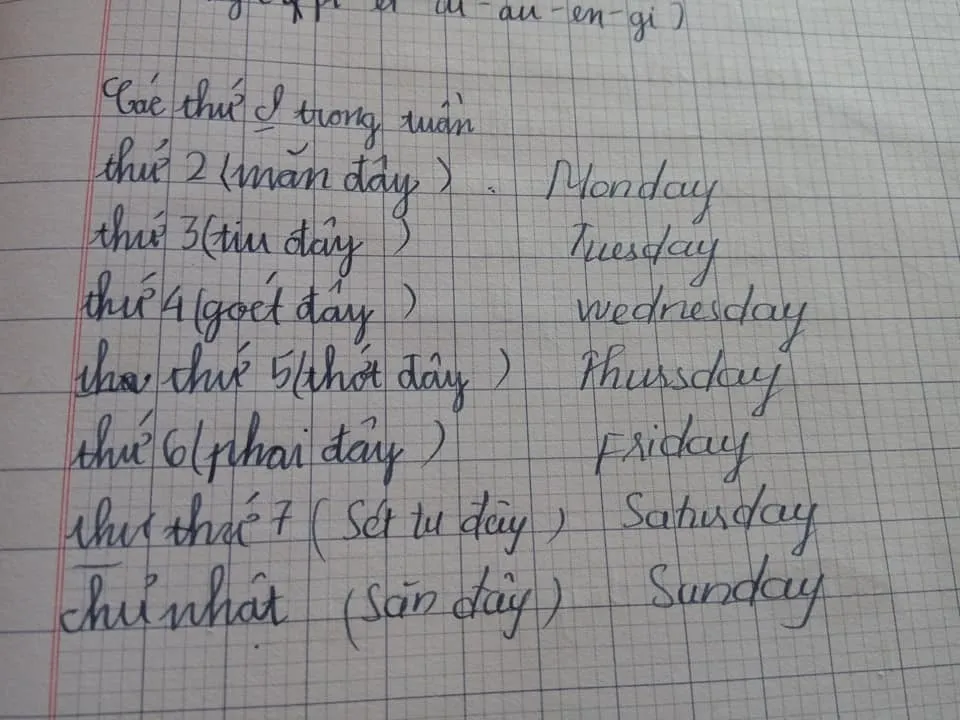 au-en-gi)
Các thứ trong tuần
thứ 2 (măn đây) Monday
thứ 3 (tiu đây) Tuesday
thứ 4 (goét đây) Wednesday
thứ 5 (thớt đây) Thursday
thứ 6 (phai đây) Friday
thứ 7 (Sét tu đây) Saturday
chủ nhật (Săn đây) Sunday